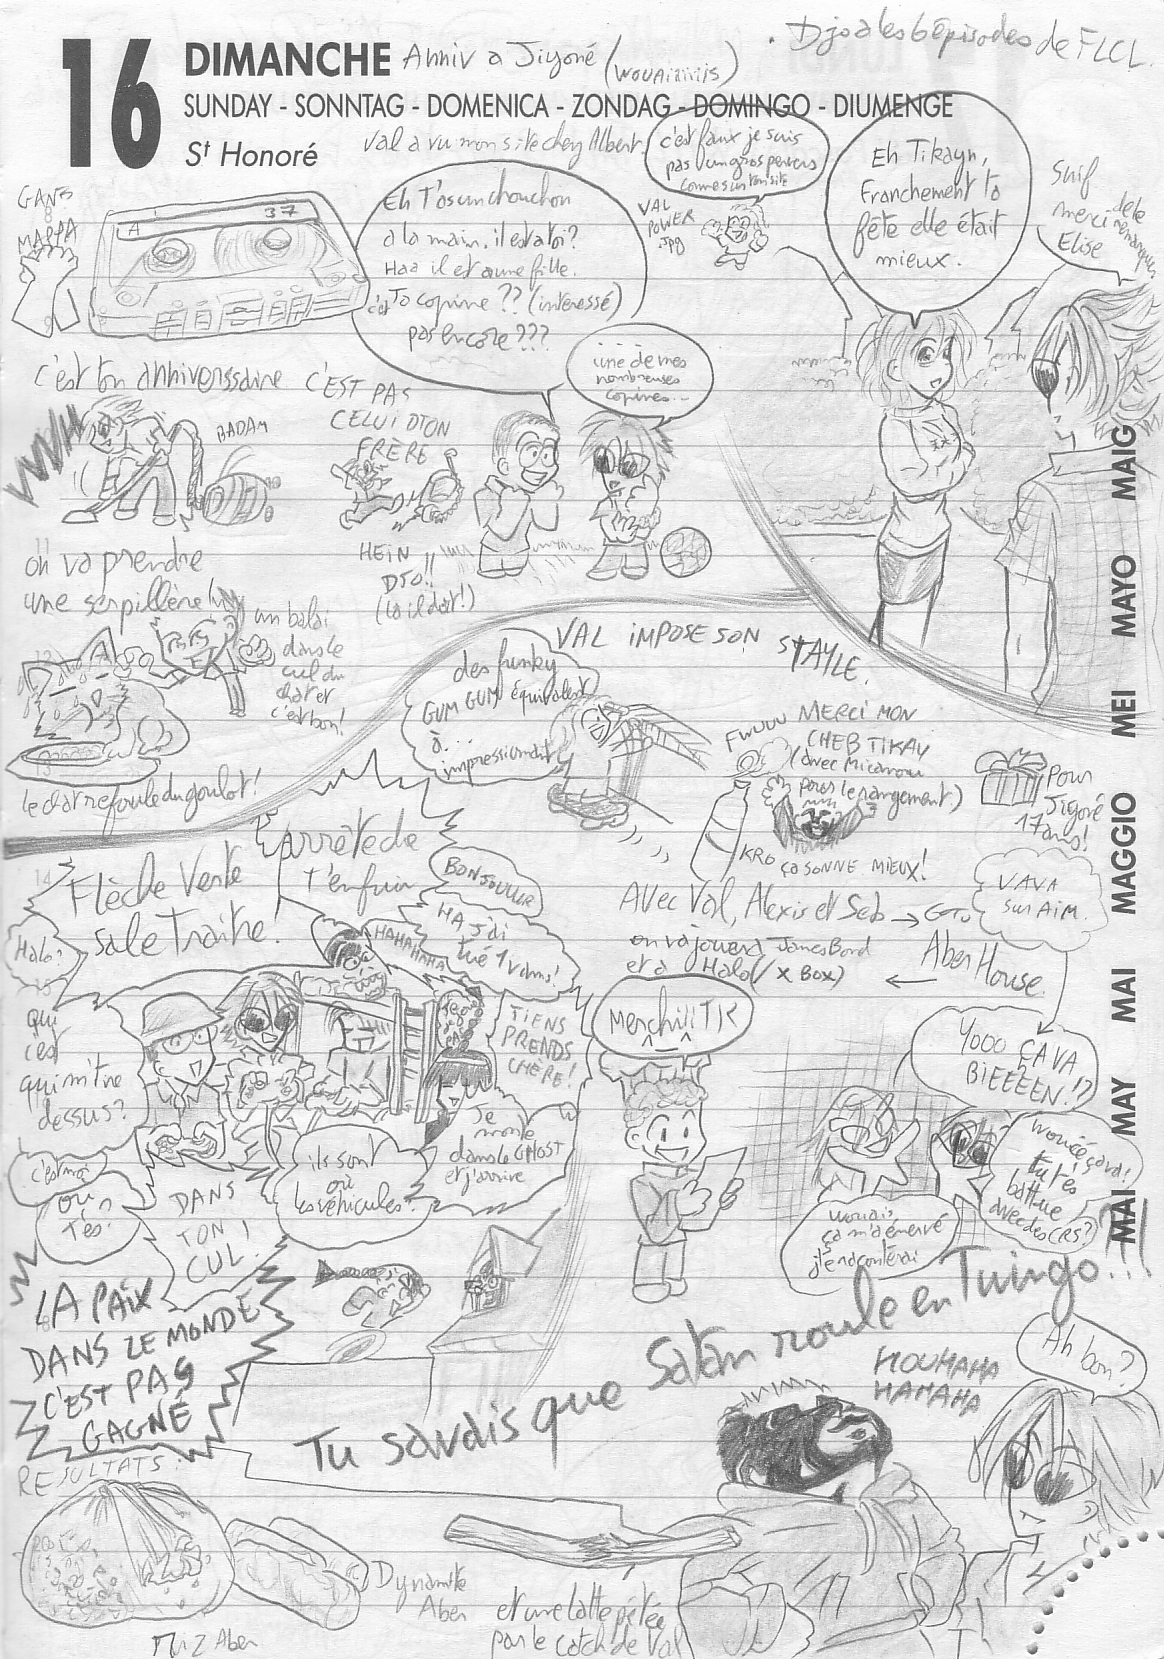 16 DIMANCHE
Anniv a Jigoré (WOUAiiiiis)
. Djo a les 6 épisodes de FLCL.
SUNDAY - SONNTAG - DOMENICA - ZONDAG - DOMINGO - DIUMENGE
St Honoré
Val a vu mon site chez Albert.
c'est faux je suis
pas un gros pervers
comme sur ton site
VAL
POWER
.jpg
Eh Tikayn,
Franchement ta
fête elle était
mieux.
Snif
merci de le remarquer
Elise
GANS
MAPPA
A
37
Eh T'as un chouchon
a la main, il est a toi?
Haa il est a une fille.
c'est Ta copine ?? (intéressé)
pas encore ???
une de mes
nombreuses
copines...
c'est ton anniverssaire
C'EST PAS
CELUI D'TON
FRÈRE
BADAM
HEIN
DJO!!
(la il dort!)
on va prendre
une serpillère
un balai
dans le
cul du
chat et
c'est bon!
le chat refoule du goulot!
VAL IMPOSE SON STAYLE.
des funky
GUM GUM équivalent
à...
impressionnant
FWUUU
MERCI MON
CHEB TIKAV
(avec Micarou
pour le rangement)
KRO ÇA SONNE MIEUX!
Pour
Jigoré
17 ans!
Avec Val, Alexis et Seb → GoTo
Aber House
←
on va jouer a James Bond
et a Halo (X Box)
VAVA
sur AiM.
Flèche Verte
sale Traitre.
arrête de
t'enfuir
BONJOUUUR
HA, j'ai
tué 1 vams!
HAHAHAHA
Halo?
qui
c'est
qui m'tire
dessus?
c'est moi
OU
T'ES?
DANS
TON
CUL!
ils sont
ou
les véhicules?
TIENS
PRENDS
CHÈRE!
Je
monte
dans le GHOST
et j'arrive
Merchiii TK
YOOO ÇA VA
BIEEEEN!?
wouéé ça va!
tu t'es
battue
avec des CRS?
wouais
ça m'a énervé
j'te raconterai
LA PAIX
DANS LE MONDE
C'EST PAS
GAGNÉ
Tu savais que Satan roule en Twingo..!!
HOUHAHA
HAHAHA
Ah bon?
RESULTATS:
Dynamite
Aber
Riz Aber
et une latte pétée
par le catch de Val
MAI MAY MAI MAGGIO MEI MAYO MAIG